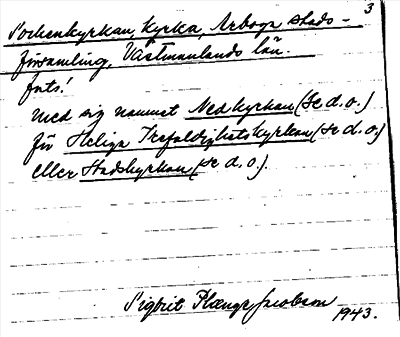 3
Sockenkyrkan, kyrka, Arboga stads-
församling, Västmanlands län.
forts!
med sig namnet Nedkyrkan (Se d.o.)
för Heliga Trefaldighetskyrkan (Se d.o.)
eller Stadskyrkan (se d.o.).
Sigbrit Plænge Jacobson
1943.